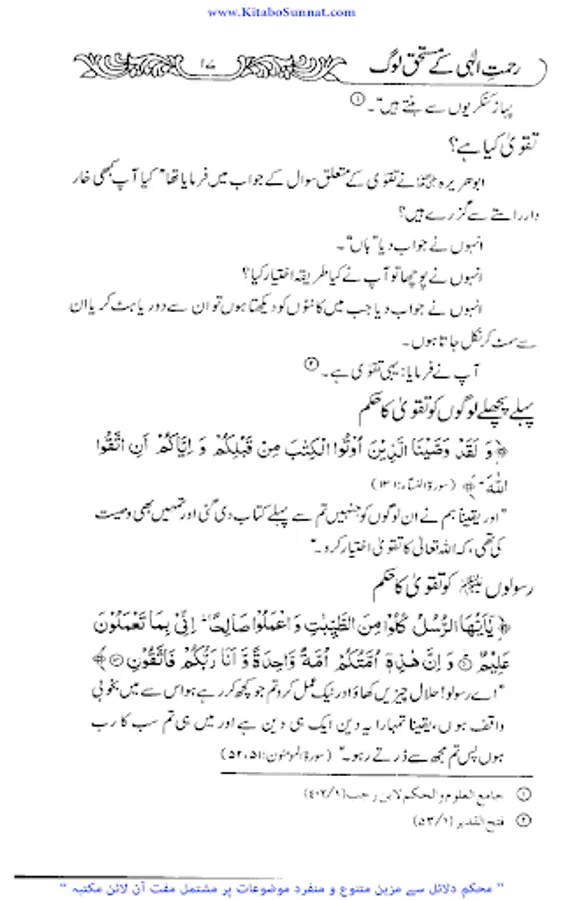 www.KitaboSunnat.com
رحمتِ الٰہی کے مستحق لوگ ۱۷
پہاڑ کنکریوں سے بنتے ہیں"۔ ①
تقویٰ کیا ہے؟
ابوھریرہ رضی اللہ عنہ نے تقویٰ کے متعلق سوال کے جواب میں فرمایا تھا "کیا آپ کبھی خار
دار راستے سے گزرے ہیں؟
انہوں نے جواب دیا "ہاں"۔
انہوں نے پوچھا تو آپ نے کیا طریقہ اختیار کیا؟
انہوں نے جواب دیا جب میں کانٹوں کو دیکھتا ہوں تو ان سے دور یا ہٹ کر یا ان
سے سمٹ کر نکل جاتا ہوں۔
آپ نے فرمایا: یہی تقویٰ ہے۔ ②
پہلے پچھلے لوگوں کو تقویٰ کا حکم
﴿وَ لَقَدْ وَصَّيْنَا الَّذِيْنَ اُوْتُوا الْكِتٰبَ مِنْ قَبْلِكُمْ وَ اِيَّاكُمْ اَنِ اتَّقُوا
اللّٰهَ﴾ (سورۃ النساء: ۱۳۱)
"اور یقیناً ہم نے ان لوگوں کو جنہیں تم سے پہلے کتاب دی گئی اور تمہیں بھی وصیت
کی تھی، کہ اللہ تعالیٰ کا تقویٰ اختیار کرو۔"
رسولوں ﷺ کو تقویٰ کا حکم
﴿يٰۤاَيُّهَا الرُّسُلُ كُلُوْا مِنَ الطَّيِّبٰتِ وَ اعْمَلُوْا صَالِحًا ؕ اِنِّيْ بِمَا تَعْمَلُوْنَ
عَلِيْمٌ ۝ وَ اِنَّ هٰذِهٖۤ اُمَّتُكُمْ اُمَّةً وَّاحِدَةً وَّ اَنَا رَبُّكُمْ فَاتَّقُوْنِ ۝﴾
"اے رسولو! حلال چیزیں کھاؤ اور نیک عمل کرو تم جو کچھ کر رہے ہو اس سے میں بخوبی
واقف ہوں، یقیناً تمہارا یہ دین ایک ہی دین ہے اور میں ہی تم سب کا رب
ہوں پس تم مجھ سے ڈرتے رہو۔" (سورۃ المومنون: ۵۲،۵۱)
① جامع العلوم والحکم لابن رجب (۴۰۲/۱)
② فتح القدیر (۵۳/۱)
" محکم دلائل سے مزین متنوع و منفرد موضوعات پر مشتمل مفت آن لائن مکتبہ "